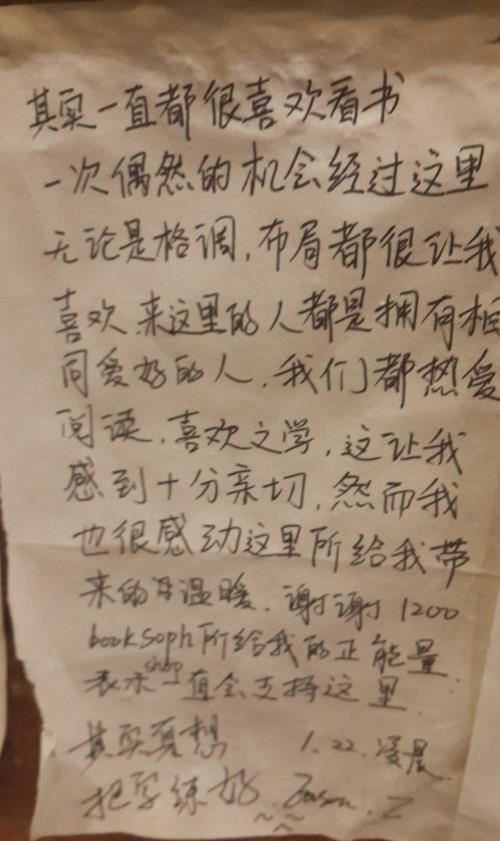 其实一直都很喜欢看书
一次偶然的机会经过这里
无论是格调,布局都很让我
喜欢.来这里的人都是拥有相
同爱好的人,我们都热爱
阅读,喜欢文学,这让我
感到十分亲切,然而我
也很感动这里所给我带
来的温暖.谢谢1200
booksoph所给我的正能量.
shop
表示一直会支持这里.
其实真想 1.22.凌晨.
把字练好 Jason.Z